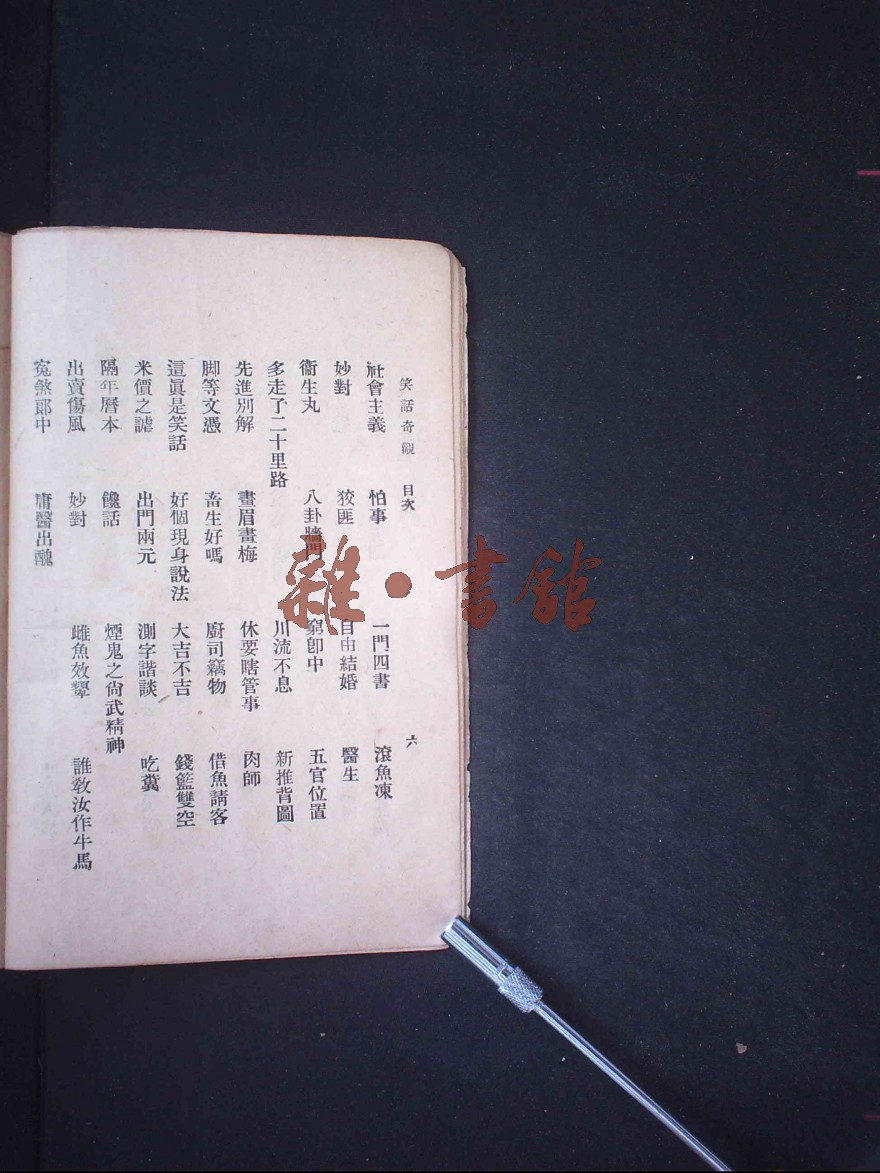 笑話奇觀 目次 六
社會主義 怕事 一門四書 滾魚凍
妙對 狡匪 自由結婚 醫生
衞生丸 八卦牆門 窮卽中 五官位置
多走了二十里路 川流不息 新推背圖
先進別解 畫眉畫梅 休要瞎管事 肉師
脚等文憑 畜生好嗎 廚司竊物 借魚請客
這眞是笑話 好個現身說法 大吉不吉 錢籃雙空
米價之謔 出門兩元 測字諧談 吃糞
隔年曆本 饞話 煙鬼之尙武精神
出賣傷風 妙對 雌魚效顰 誰敎汝作牛馬
冤煞郞中 庸醫出醜
雜·書館